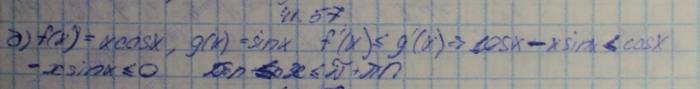 41.57
д) f(x) = xcosx, g(x) = sinx f'(x) ≤ g'(x) => cosx - xsinx ≤ cosx
-xsinx ≤ 0 x ≤ π + πn